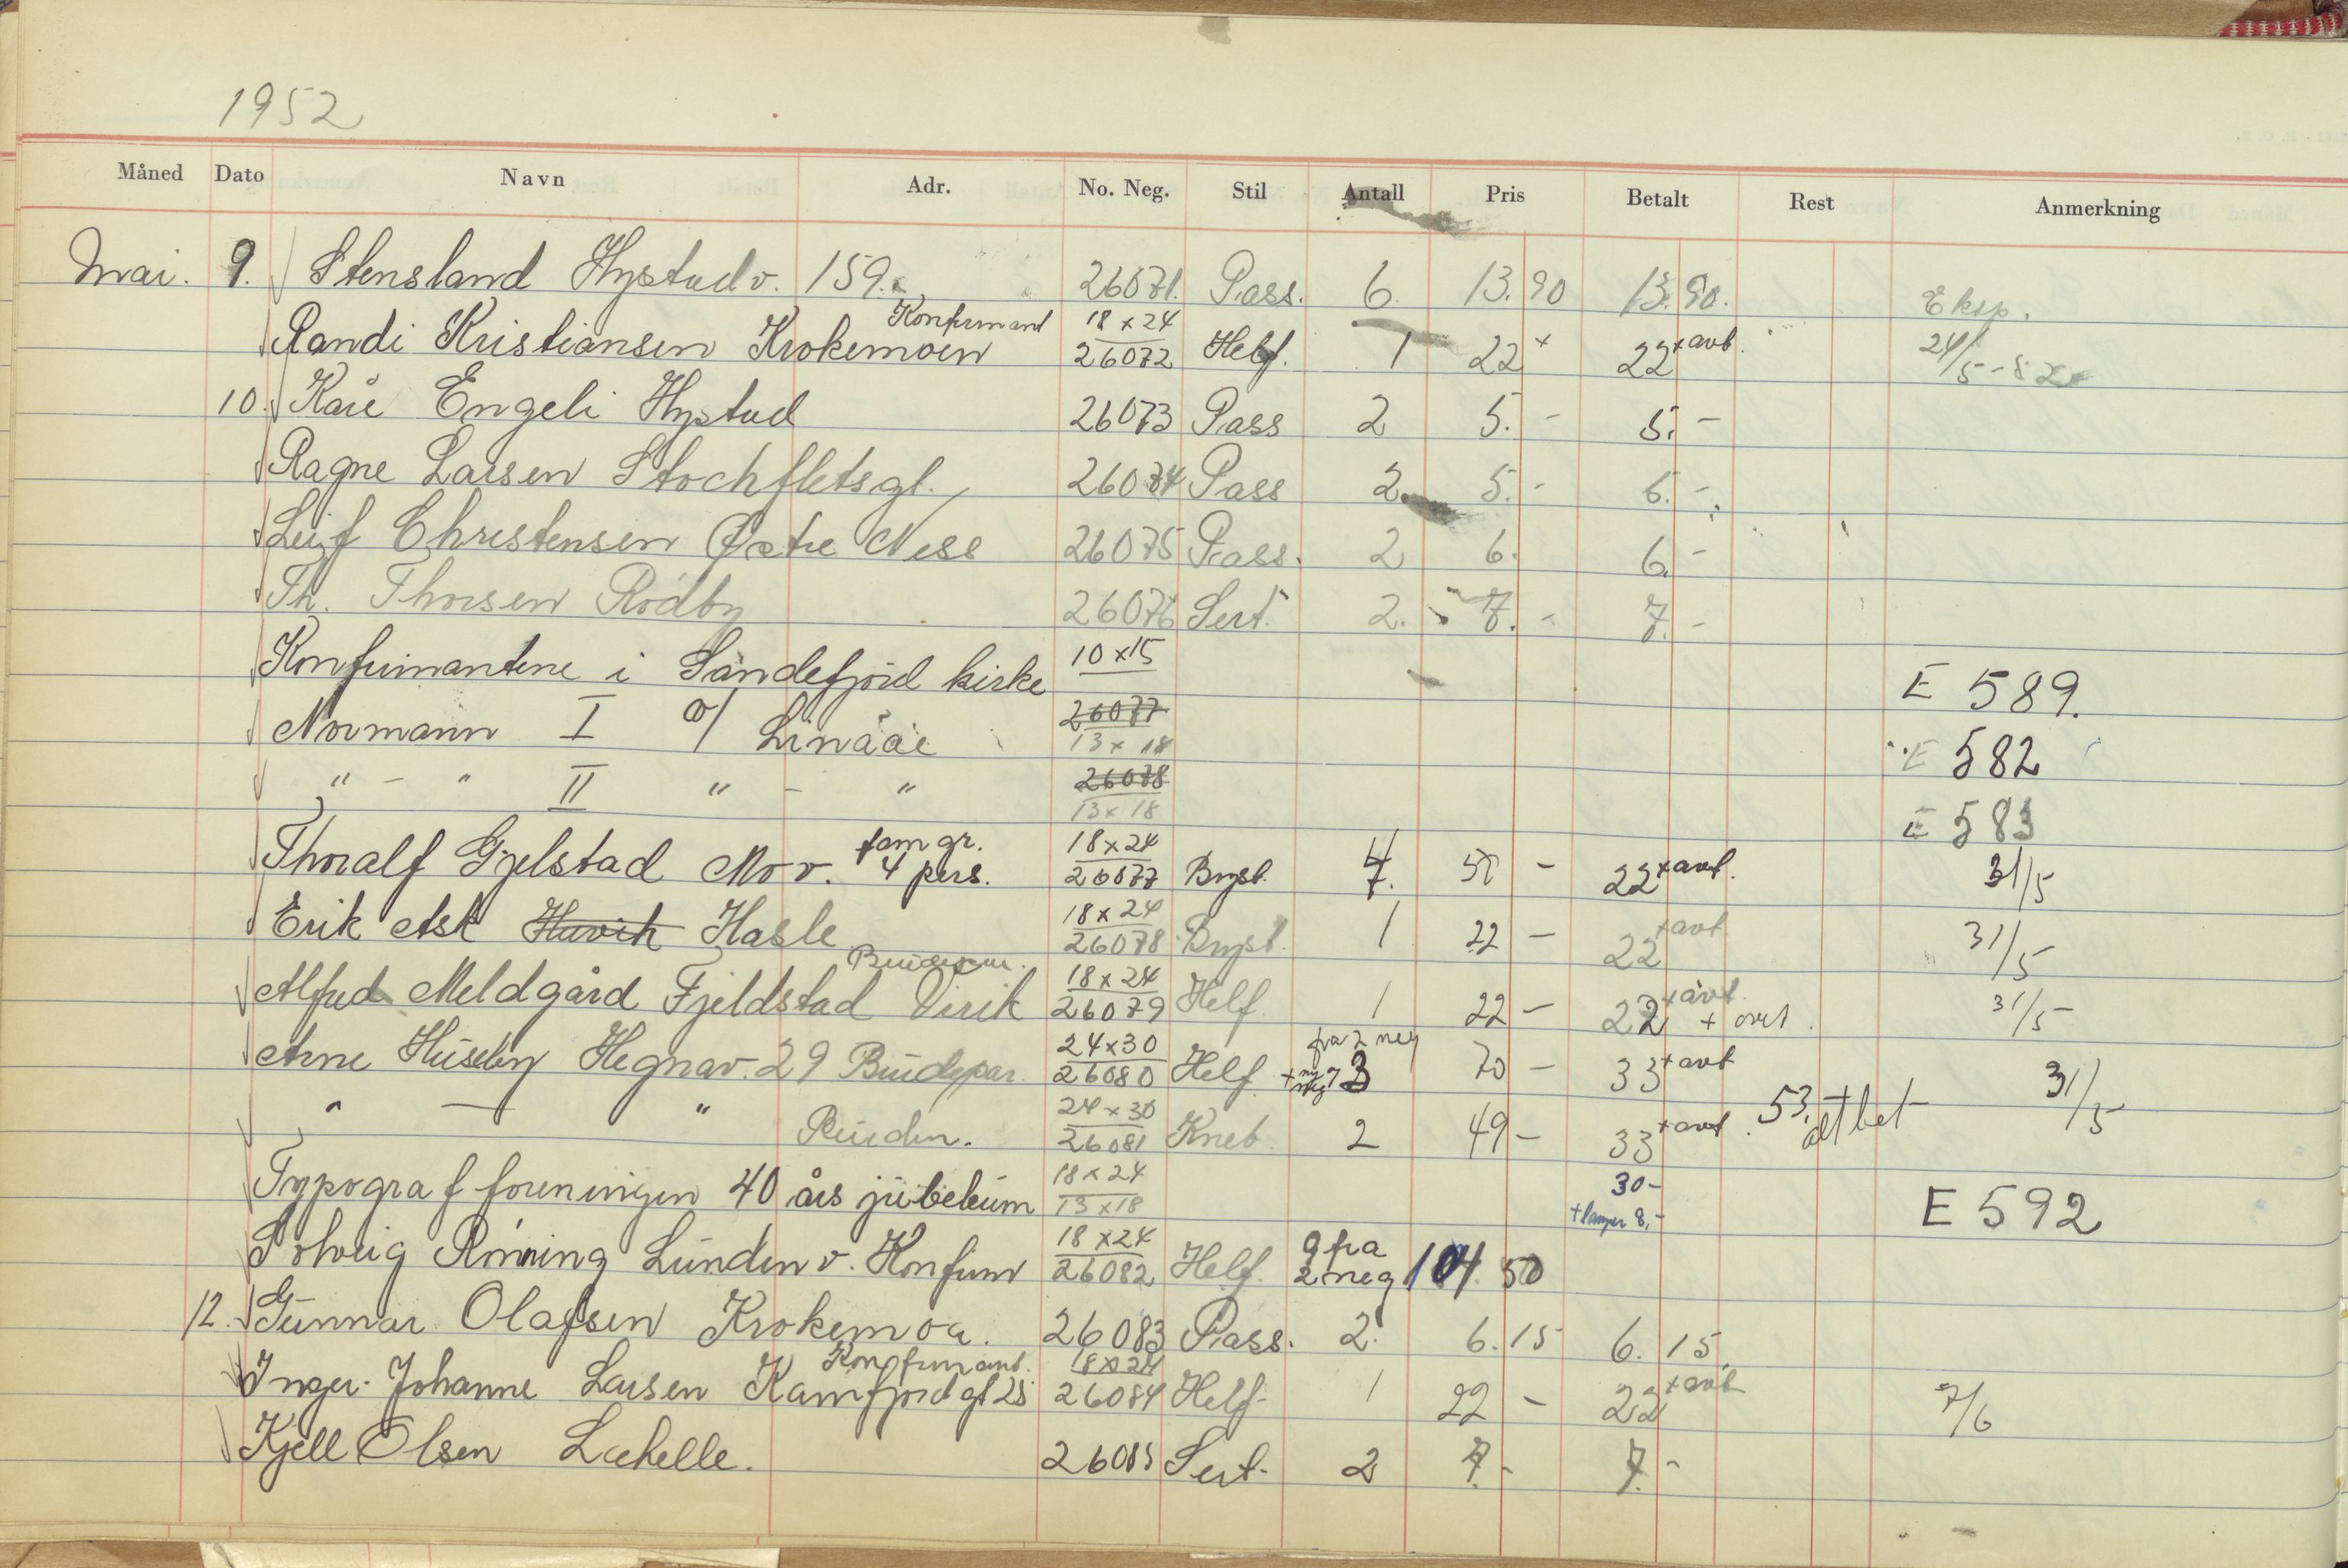 1952
Måned Dato Navn Adr. No. Neg. Stil Antall Pris Betalt Rest Anmerkning
Mai. 9. Stensland Hystadv. 159. 26071. Pass. 6. 13.90 13.90. Eksp.
Randi Kristiansen Krokemoen Konfirmant 18 x 24 26072 Helf. 1 22 x 22 + avt. 24/5-52
10. Kåre Engeli Hystad 26073 Pass 2 5. - 5. -
Ragne Larsen Stochfletsgt. 26074 Pass 2 5. - 5. -
Leif Christensen Østre Ness 26075 Pass. 2 6. 6. -
Th. Thorsen Rødby 26076 Sert. 2. 7. - 7. -
Konfirmantene i Sandefjord kirke 10 x 15 E 589.
Normann I o/ Linaae 26077 13 x 18 E 582
" - " II " - " 26078 13 x 18 E 583
Thoralf Gjelstad Mov. fam gr. 4 pers. 18 x 24 26077 Bryst. 4. 50 - 22 + avt. 31/5
Erik Ask Havik Hasle 18 x 24 26078 Bryst. 1 22 - 22 + avt 31/5
Alfred Meldgård Fjeldstad Virik Brudepar. 18 x 24 26079 Helf 1 22 - 22 + avt. + avt. 31/5
Arne Huseby Hegnav. 29 Brudepar. 24 x 30 26080 Helf fra 2 neg + ny neg 3 70 - 33 + avt 31/5
" — " Bruden. 24 x 30 26081 Kneb. 2 49 - 33 + avt. 53,- alt bet
Typografforeningen 40 års jubeleum 18 x 24 13 x 18 30 - + lamper 8,- E 592
Solveig Rönning Lundenv. Konfirm 18 x 24 26082 Helf. 9 fra 2 neg 104. 50
12. Gunnar Olafsen Krokemoa. 26083 Pass. 2. 6.15 6.15
Inger-Johanne Larsen Kamfjordgt 25 Konfirmant. 18 x 24 26084 Helf- 1 22 - 22 + avt 7/6
Kjell Olsen Lahelle. 26085 Sert- 2 7. - 7. -